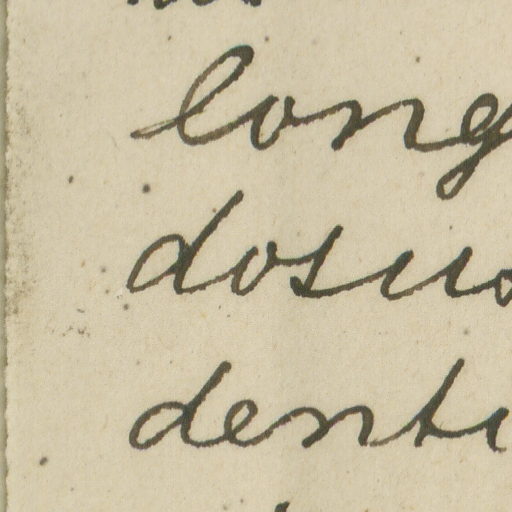 long
dosus
denti